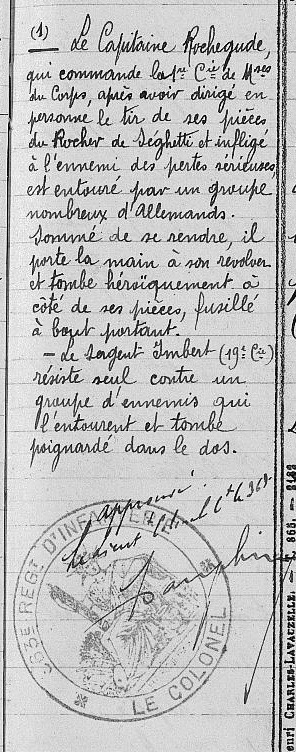 (1) Le Capitaine Rochegude,
qui commande la 1re Cie de Mses
du Corps, après avoir dirigé en
personne le tir de ses pièces
du Rocher de Seghetti et infligé
à l'ennemi des pertes sérieuses,
est entouré par un groupe
nombreux d'Allemands.
Sommé de se rendre, il
porte la main à son revolver
et tombe héroïquement à
côté de ses pièces, fusillé
à bout portant.
- Le Sergent Imbert (19e Cie)
résiste seul contre un
groupe d'ennemis qui
l'entourent et tombe
poignardé dans le dos.
approuvé
363E REGT D'INFANTERIE
LE COLONEL
uri CHARLES-LAVAUZELLE. —